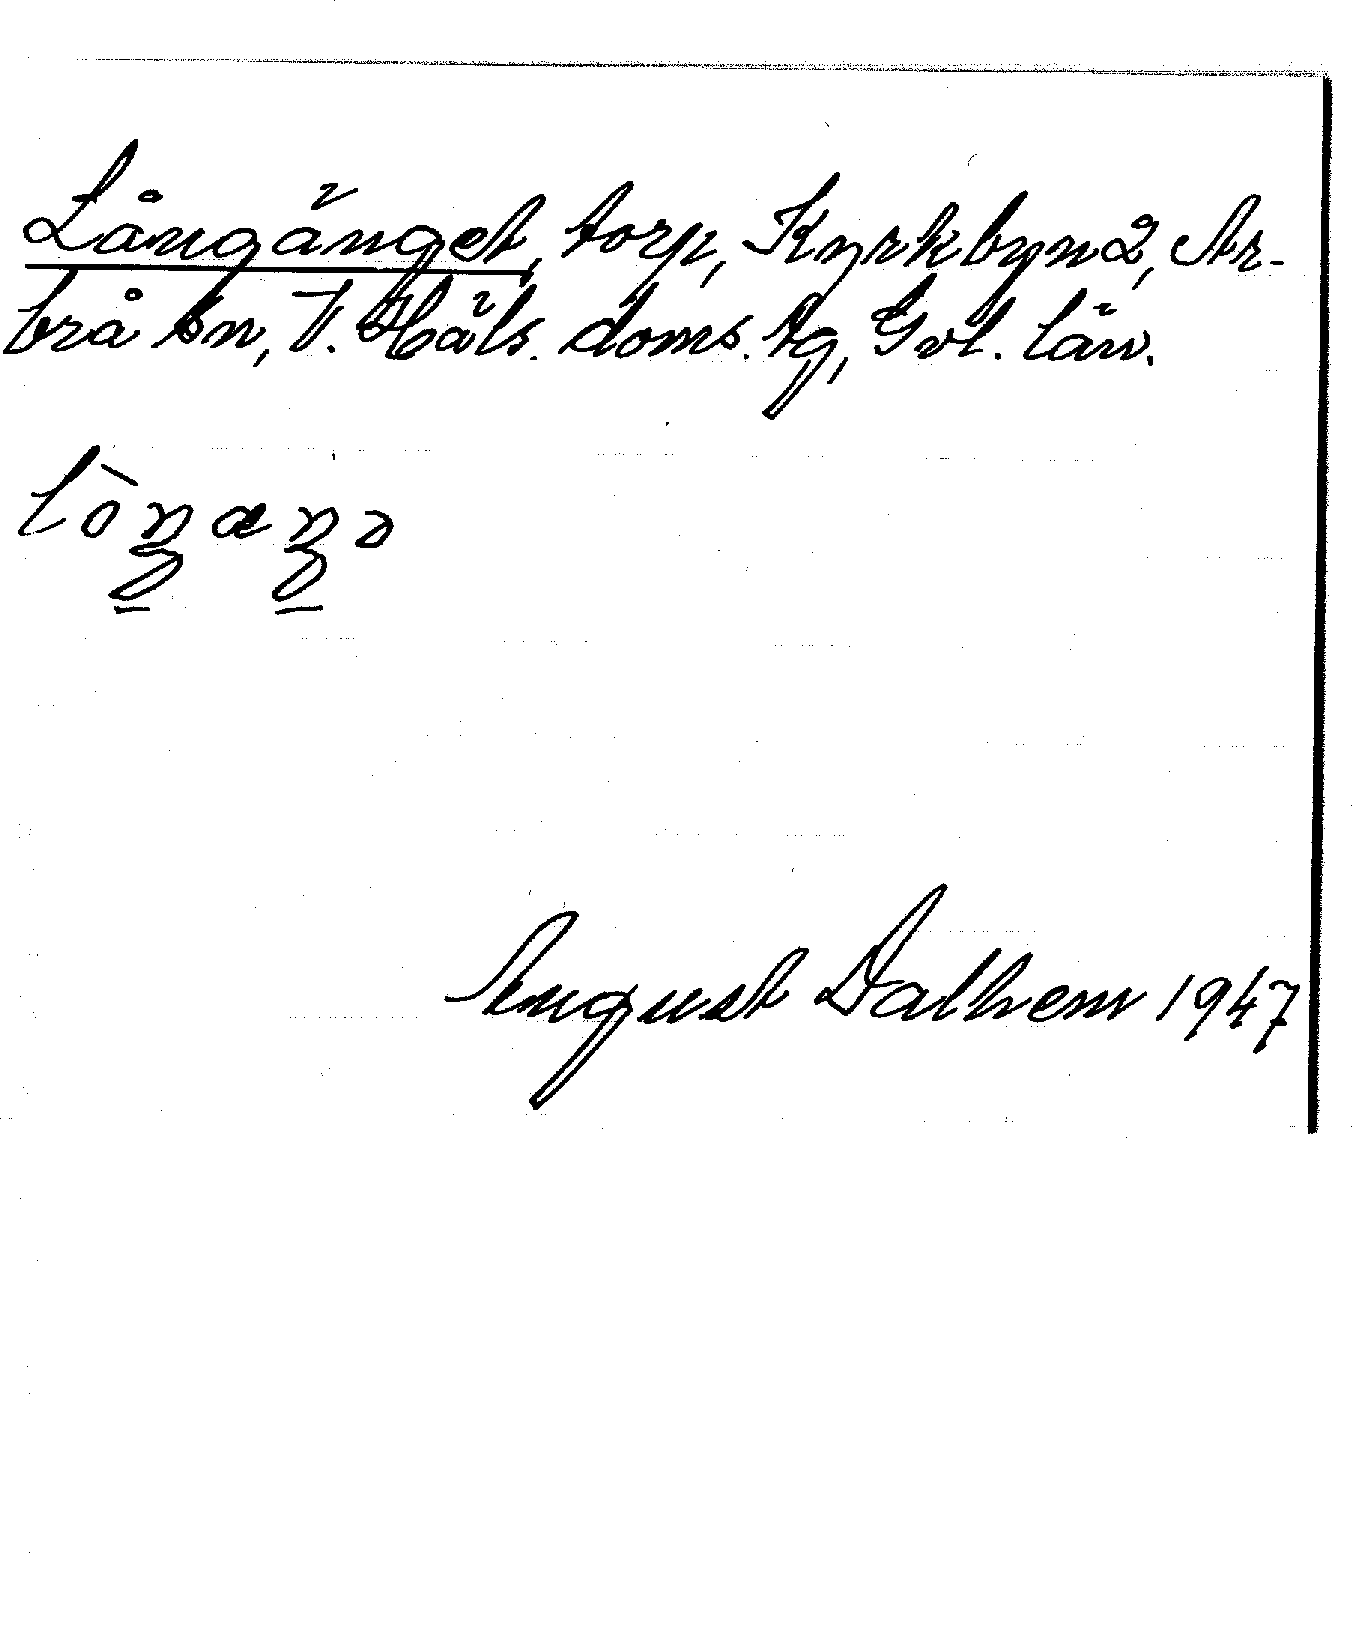 Långänget, torp, Kyrkbyn 2, Ar-
brå sn, V. Häls. doms. tg, Gvl. län.
lòŋæŋə
August Dalhem 1947